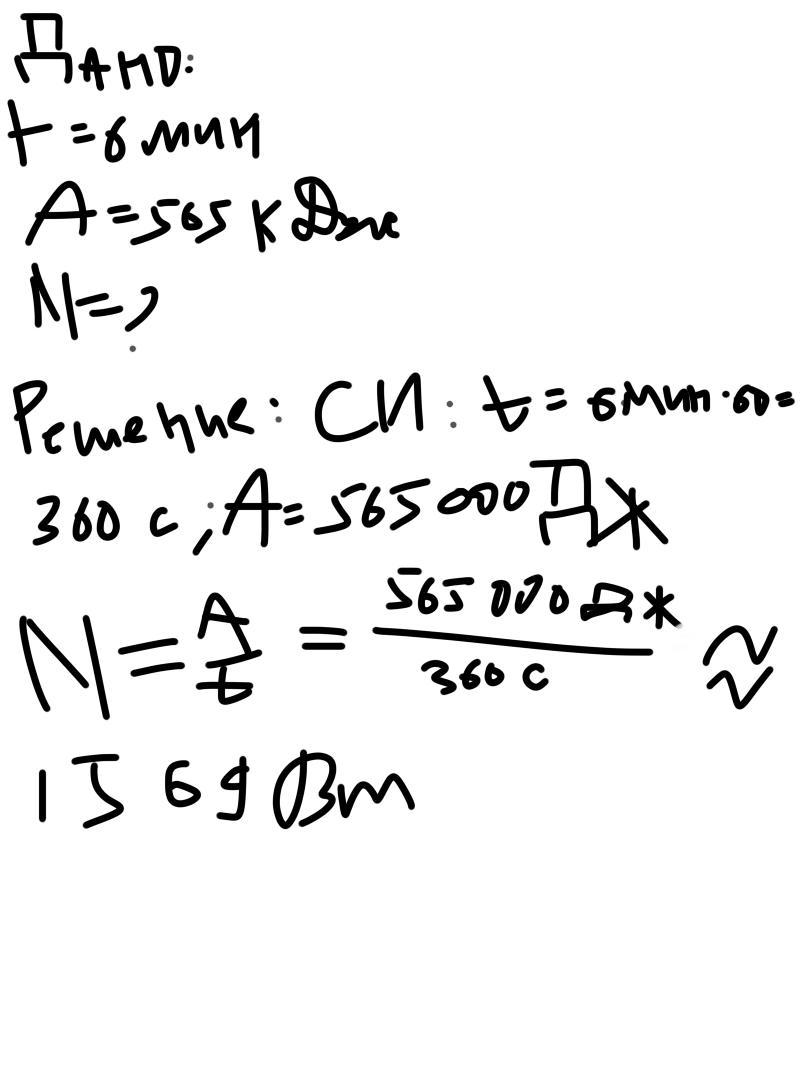 Дано:
t = 6 мин
A = 565 кДж
N = ?
Решение: СИ: t = 6 мин · 60 =
360 с; A = 565 000 Дж
N = A/t = 565 000 Дж/360 с ≈
1569 Вт